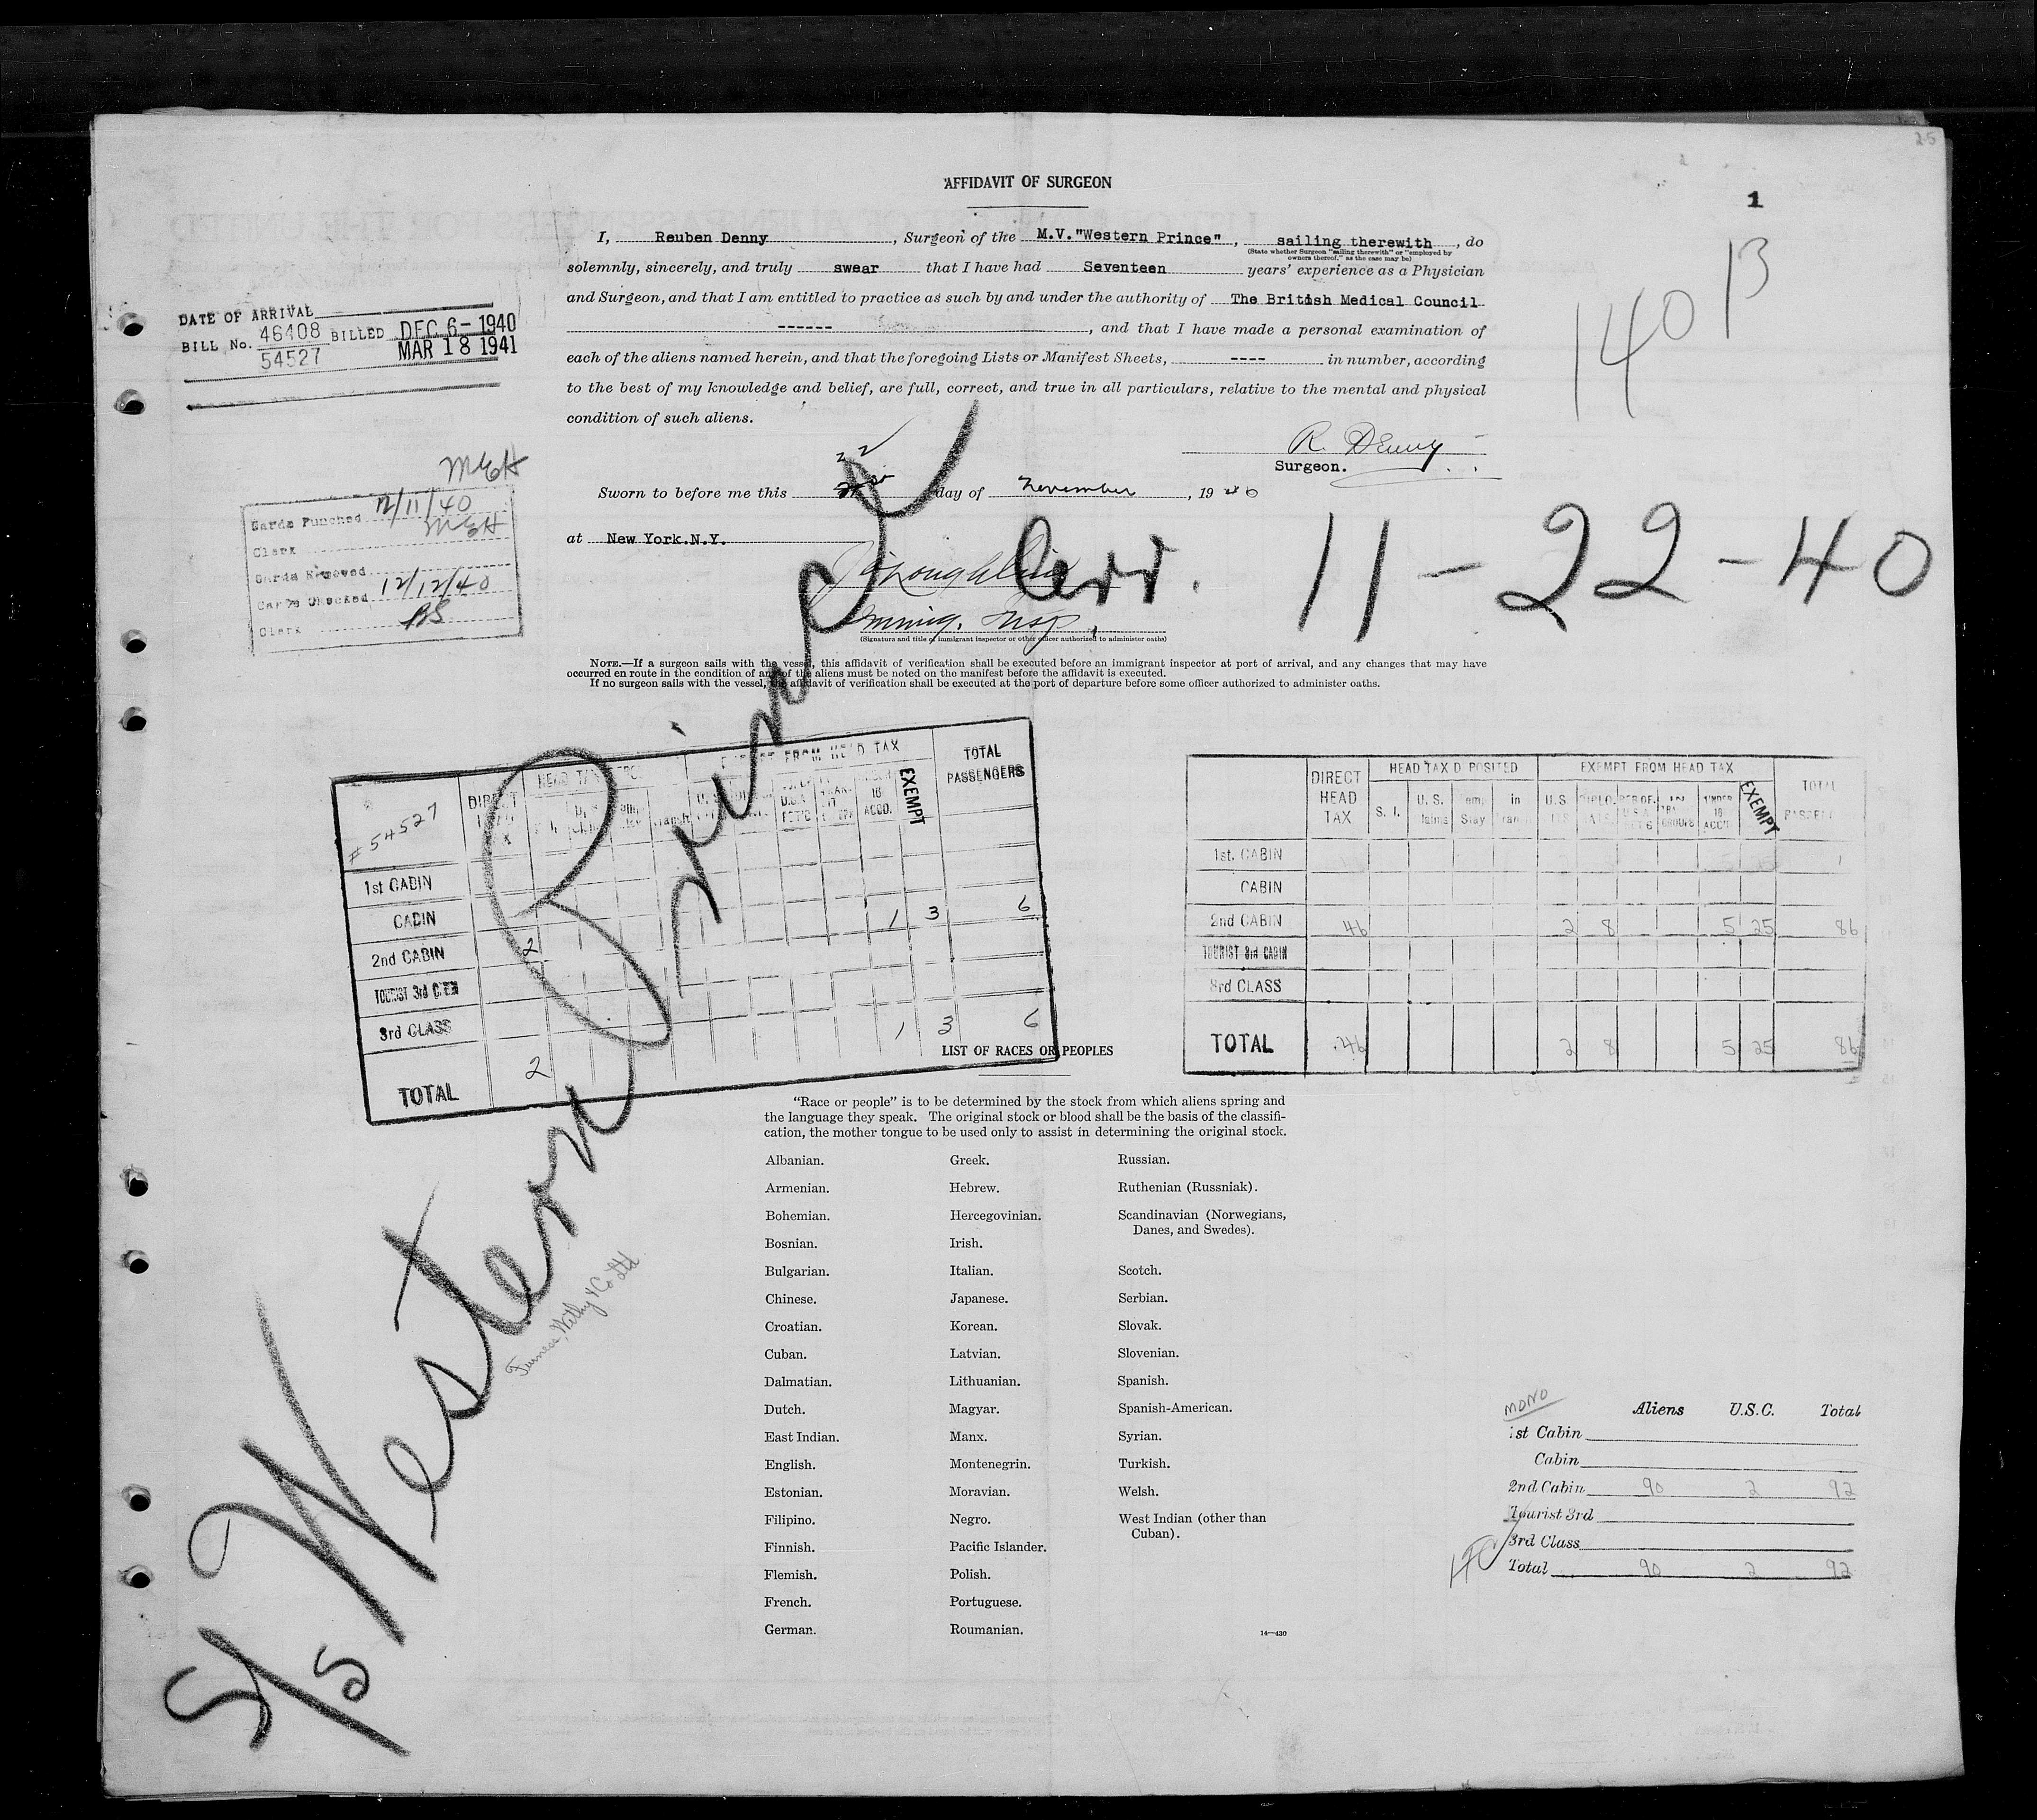 25
AFFIDAVIT OF SURGEON
1
I, Reuben Denny, Surgeon of the M.V."Western Prince", sailing therewith, do
(State whether Surgeon "sailing therewith" or "employed by
owners thereof," as the case may be)
solemnly, sincerely, and truly swear that I have had Seventeen years' experience as a Physician
and Surgeon, and that I am entitled to practice as such by and under the authority of The British Medical Council
------, and that I have made a personal examination of
each of the aliens named herein, and that the foregoing Lists or Manifest Sheets, ---- in number, according
to the best of my knowledge and belief, are full, correct, and true in all particulars, relative to the mental and physical
condition of such aliens.
140 13
DATE OF ARRIVAL
BILL No. 46408 BILLED DEC 6- 1940
54527 MAR 18 1941
R. Denny
Surgeon.
22
Sworn to before me this day of November, 1940
at New York.N.Y.
Immig. Insp.
(Signature and title of immigrant inspector or other officer authorized to administer oaths)
Arr. 11-22-40
MEH
Cards Punched 12/11/40
Clerk MEH
Cards Removed
Cards Checked 12/12/40
Clerk BS
NOTE.—If a surgeon sails with the vessel, this affidavit of verification shall be executed before an immigrant inspector at port of arrival, and any changes that may have
occurred en route in the condition of any of the aliens must be noted on the manifest before the affidavit is executed.
If no surgeon sails with the vessel, the affidavit of verification shall be executed at the port of departure before some officer authorized to administer oaths.
S/S Western Prince
Furness, Withy & Co Ltd
# 54527
DIRECT
HEAD TAX
EXEMPT FROM HEAD TAX
TOTAL
PASSENGERS
16
ACCD.
EXEMPT
1st CABIN
CABIN 1 3 6
2nd CABIN 2
TOURIST 3rd CABIN
3rd CLASS 1 3 6
TOTAL 2
DIRECT
HEAD
TAX
HEAD TAX DEPOSITED
EXEMPT FROM HEAD TAX
TOTAL
S. I.
U. S.
Stay
in
U.S.
UNDER
16
ACCD.
EXEMPT
1st. CABIN
CABIN
2nd CABIN 46 2 8 5 25 86
TOURIST 3rd CABIN
3rd CLASS
TOTAL 46 2 8 5 25 86
LIST OF RACES OR PEOPLES
"Race or people" is to be determined by the stock from which aliens spring and
the language they speak. The original stock or blood shall be the basis of the classifi-
cation, the mother tongue to be used only to assist in determining the original stock.
Albanian.
Armenian.
Bohemian.
Bosnian.
Bulgarian.
Chinese.
Croatian.
Cuban.
Dalmatian.
Dutch.
East Indian.
English.
Estonian.
Filipino.
Finnish.
Flemish.
French.
German.
Greek.
Hebrew.
Hercegovinian.
Irish.
Italian.
Japanese.
Korean.
Latvian.
Lithuanian.
Magyar.
Manx.
Montenegrin.
Moravian.
Negro.
Pacific Islander.
Polish.
Portuguese.
Roumanian.
Russian.
Ruthenian (Russniak).
Scandinavian (Norwegians,
Danes, and Swedes).
Scotch.
Serbian.
Slovak.
Slovenian.
Spanish.
Spanish-American.
Syrian.
Turkish.
Welsh.
West Indian (other than
Cuban).
14—430
MONO
Aliens U.S.C. Total
1st Cabin
Cabin
2nd Cabin 90 2 92
Tourist 3rd
3rd Class
Total 90 2 92